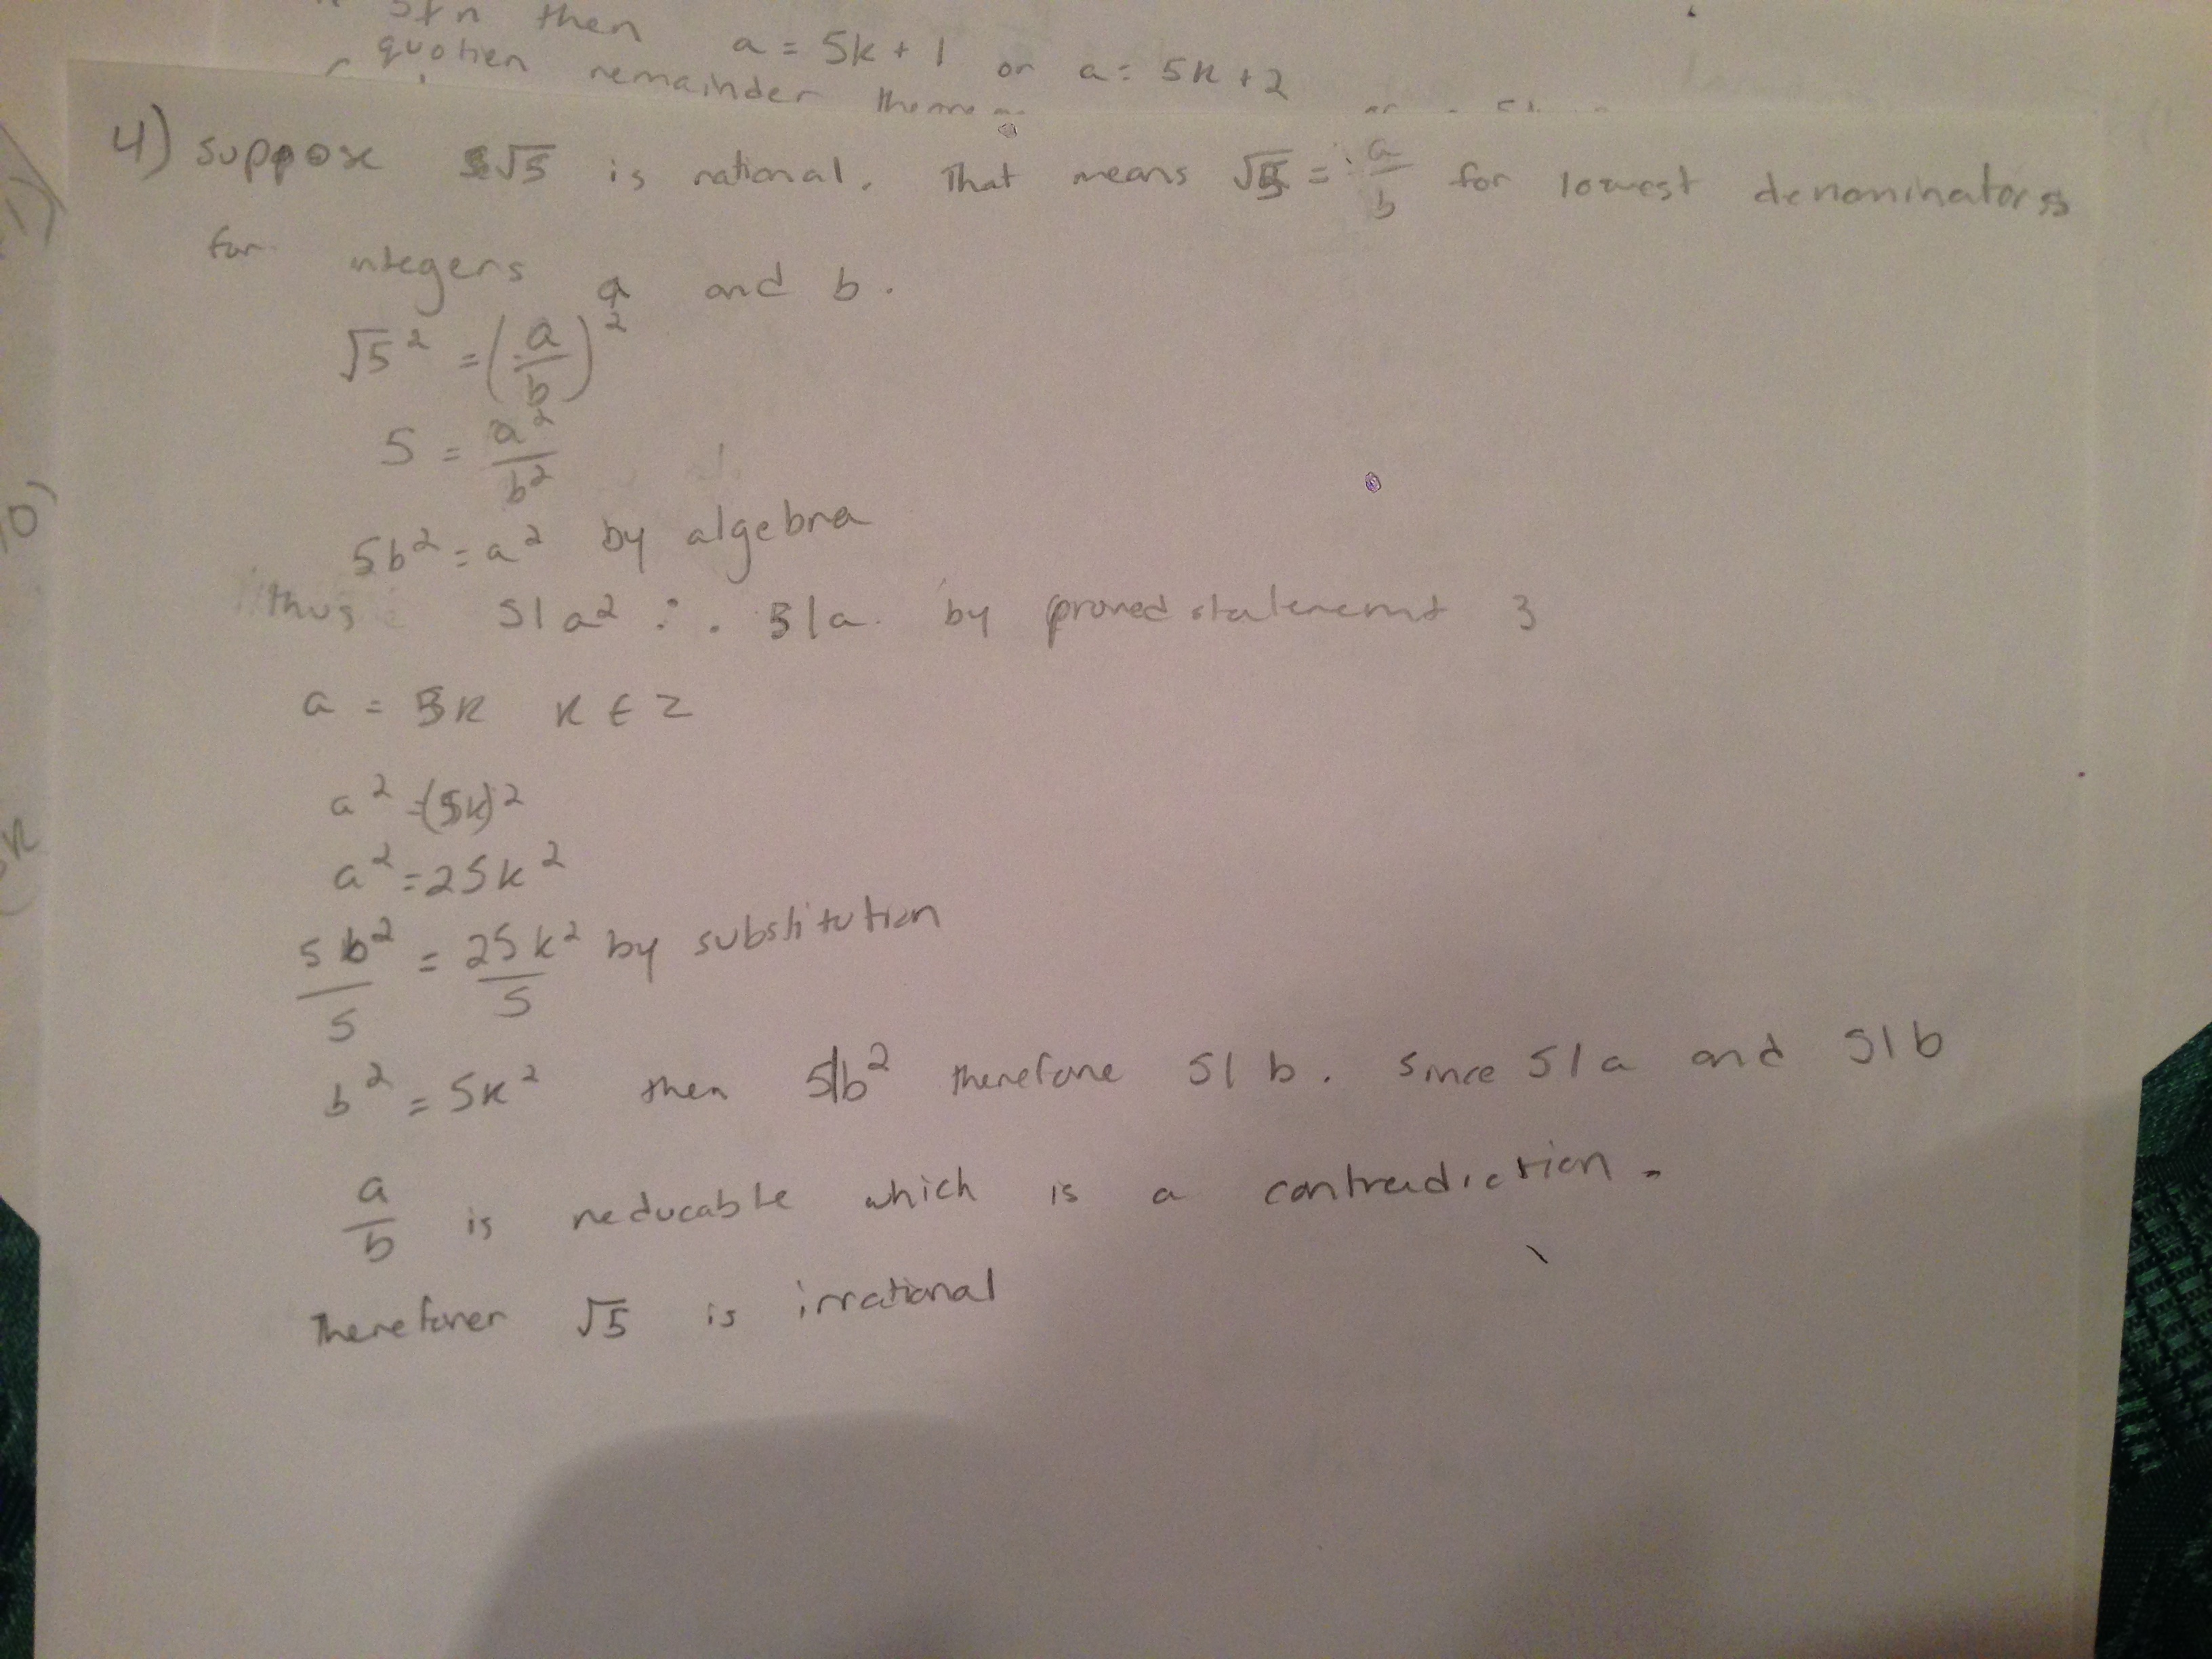 5∤n then a = 5k + 1 or a = 5k + 2
quotien remainder
4) suppose √5 is rational. That means √5 = a/b for lowest denominators
for integers a and b.
√5² = (a/b)²
5 = a²/b²
5b² = a² by algebra
thus 5|a² ∴ 5|a by proved statement 3
a = 5k k ∈ Z
a² = (5k)²
a² = 25k²
5b²/5 = 25k²/5 by substitution
b² = 5k² then 5|b² therefore 5|b. Since 5|a and 5|b
a/b is reducable which is a contradiction.
Therefover √5 is irrational